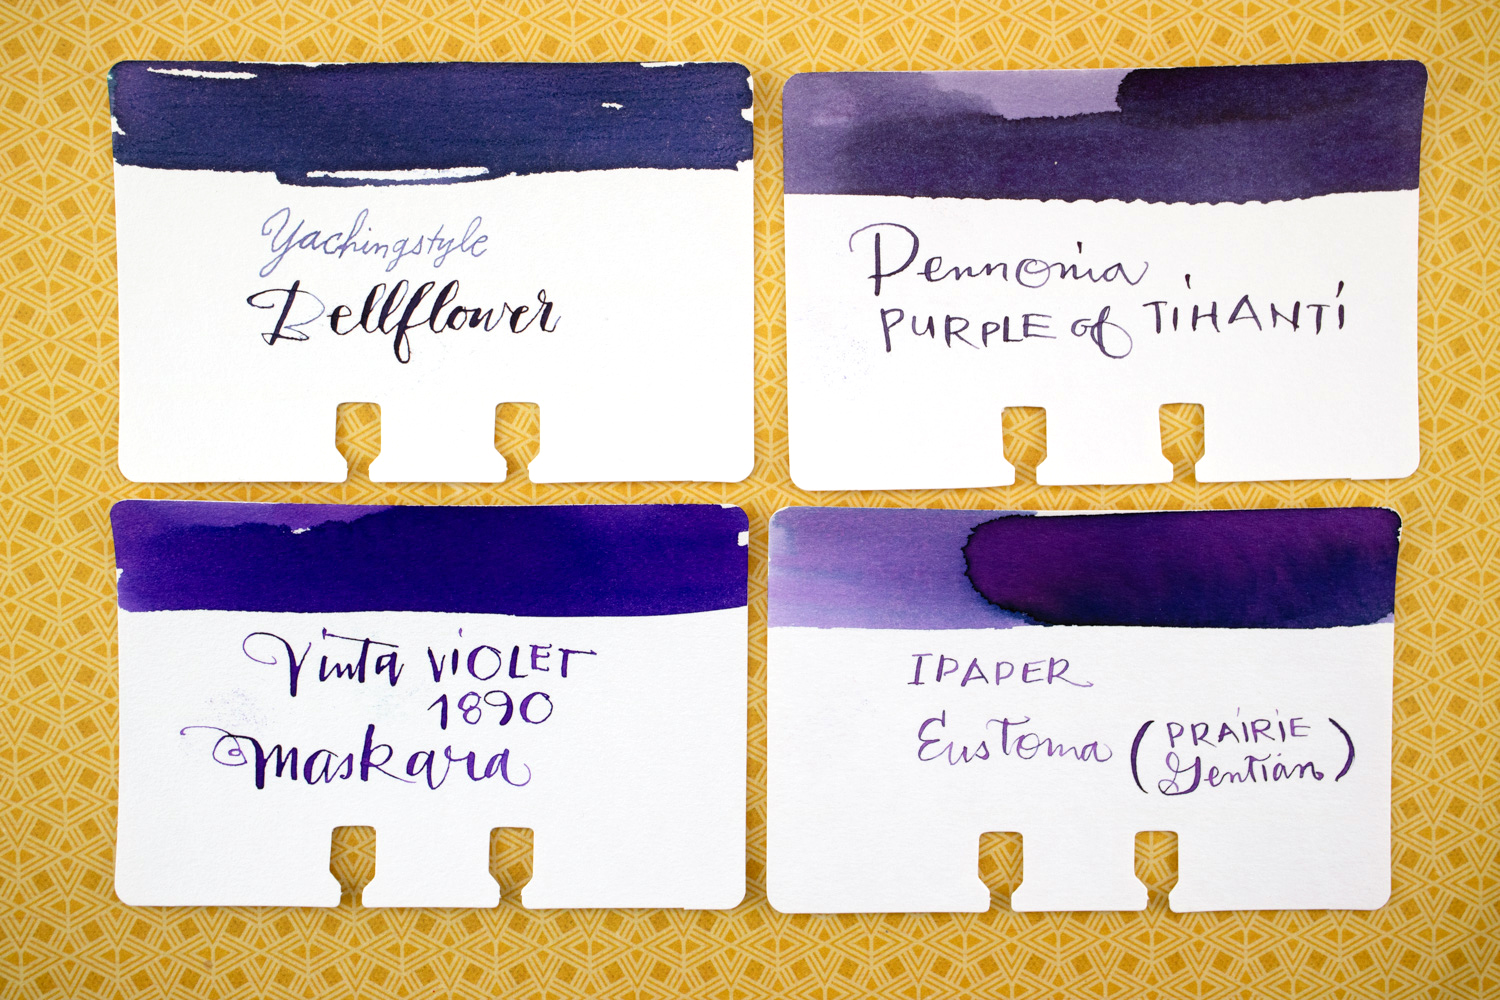 Yachingstyle
Bellflower
Pennonia
PURPLE of TIHANTI
Vinta VIOLET
1890
Maskara
IPAPER
Eustoma (PRAIRIE
Gentian)